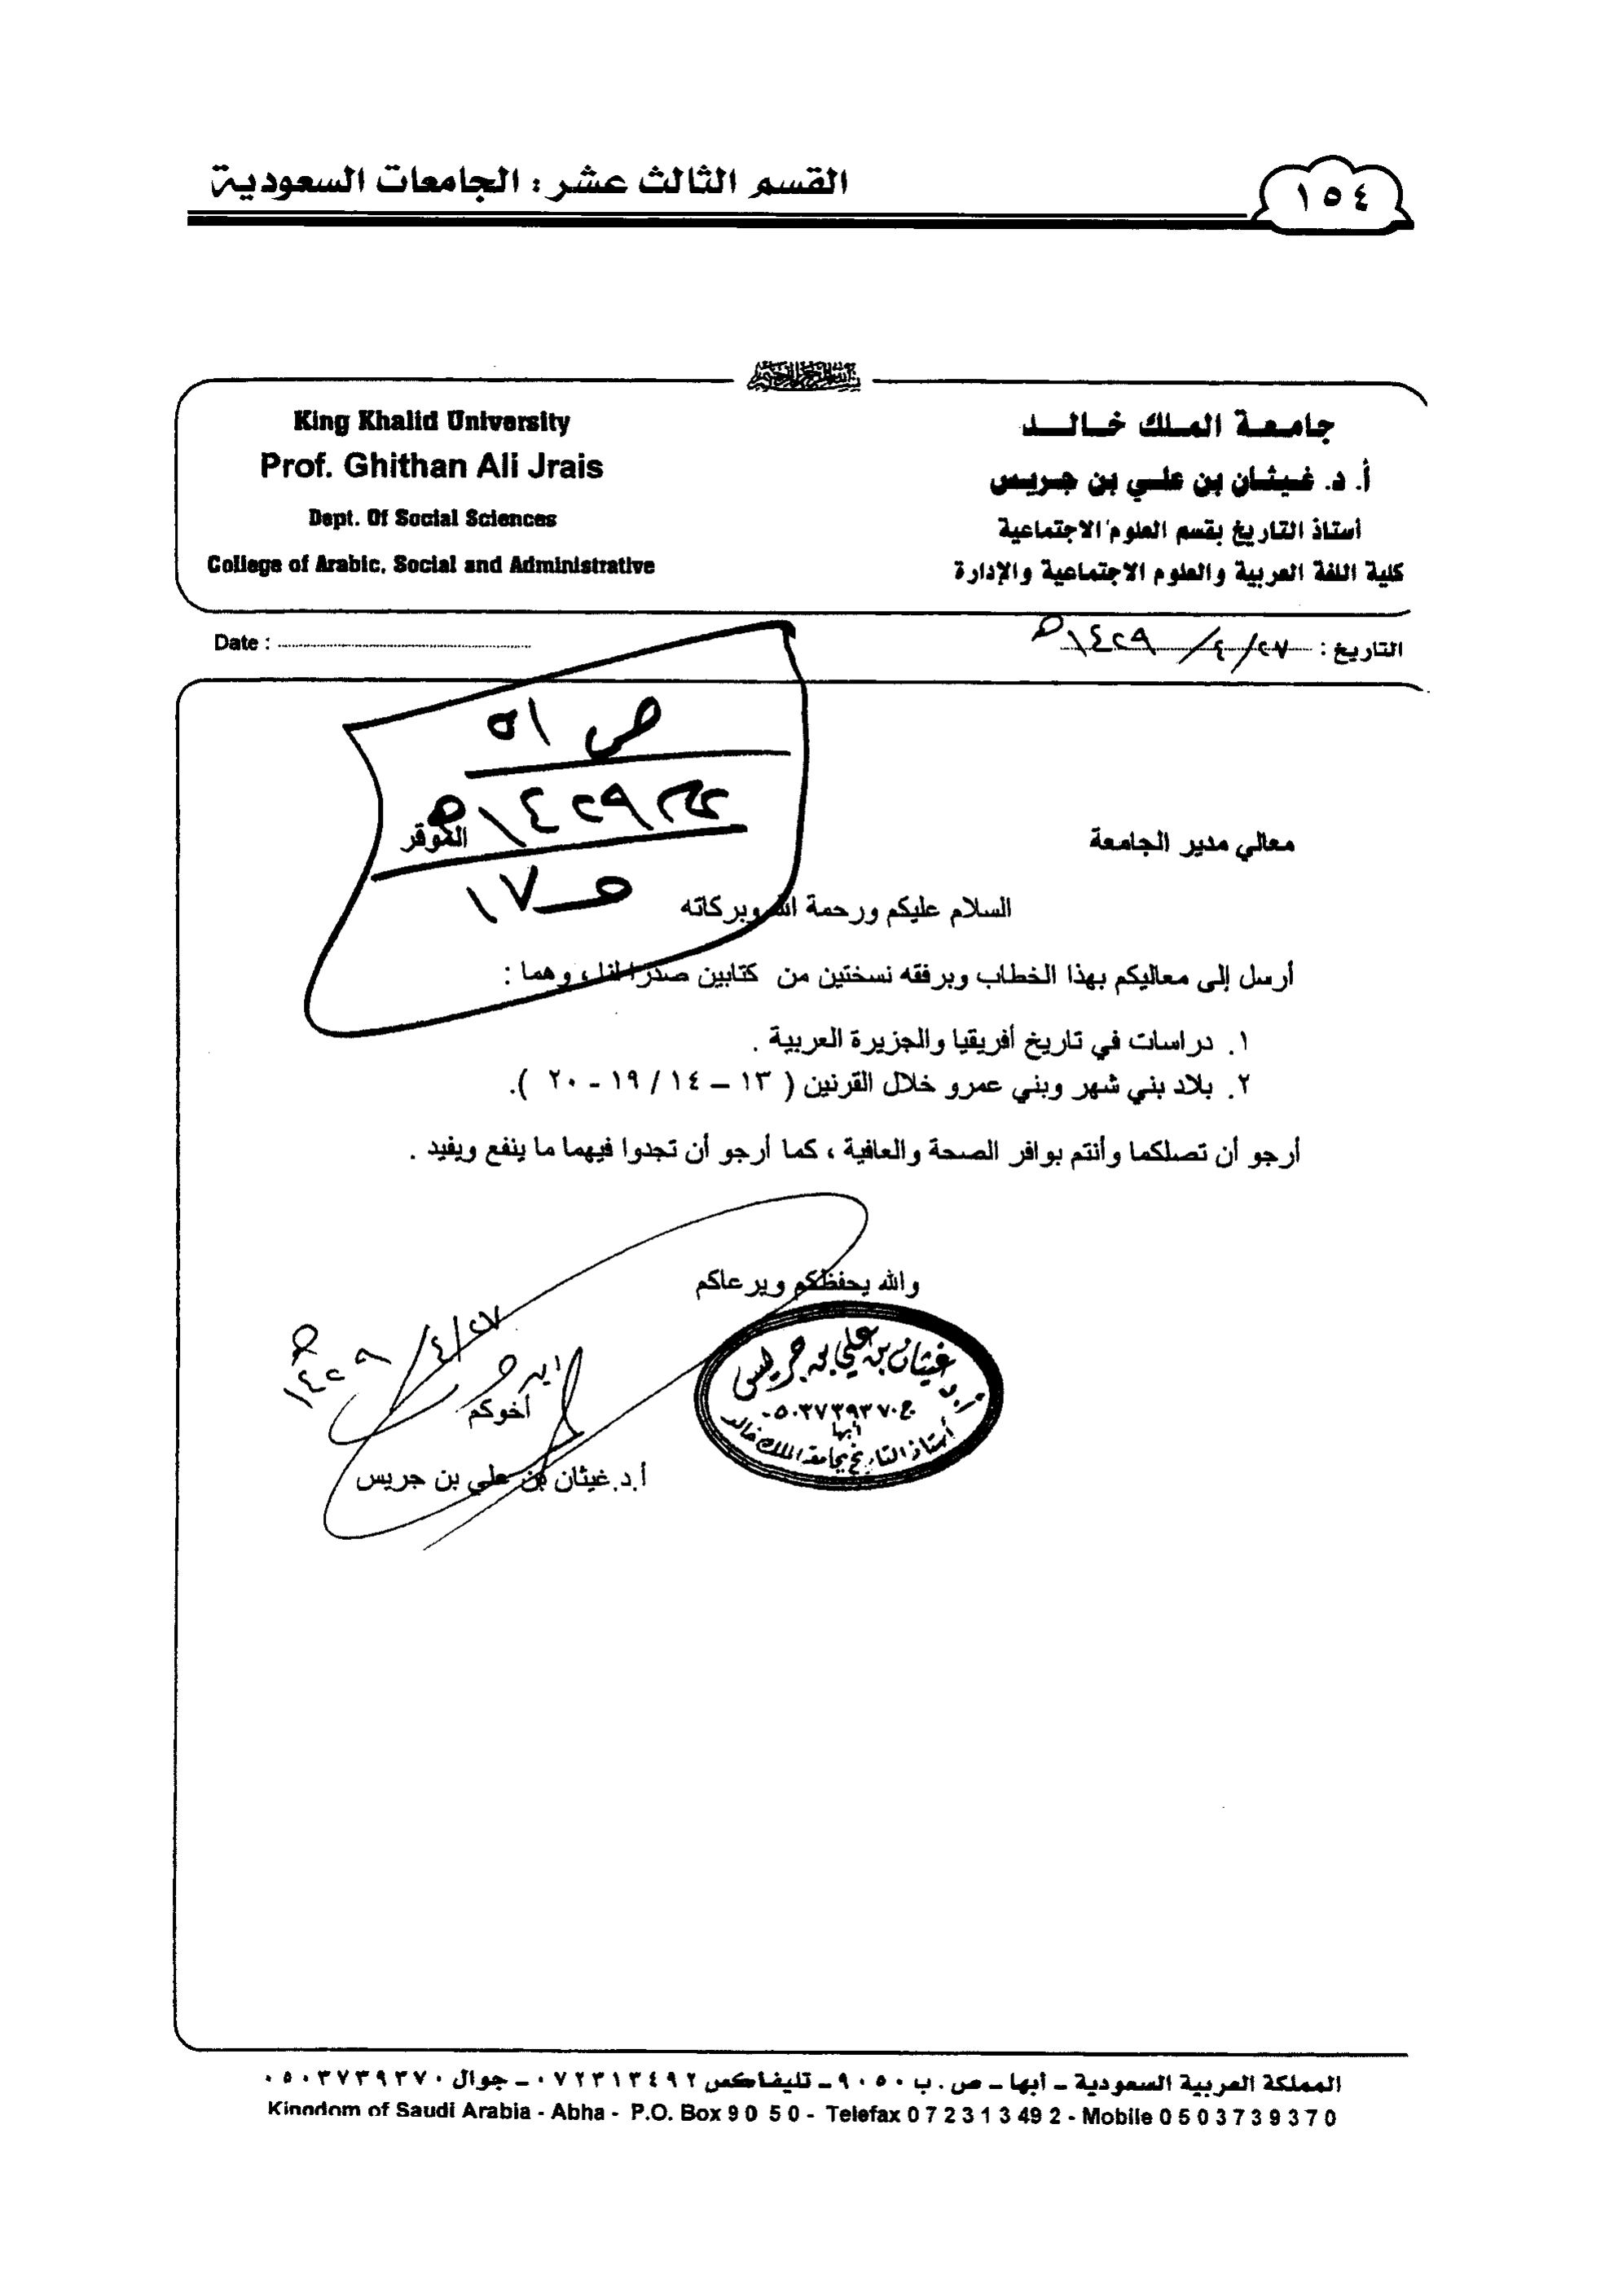 القسم الثالث عشر : الجامعات السعودية
١٥٤
بسم الله الرحمن الرحيم
جامعة الملك خالد
أ. د. غيثان بن علي بن جريس
أستاذ التاريخ بقسم العلوم الاجتماعية
كلية اللغة العربية والعلوم الاجتماعية والإدارة
King Khalid University
Prof. Ghithan Ali Jrais
Dept. Of Social Sciences
College of Arabic, Social and Administrative
التاريخ : ٢٧/٤/١٤٢٩هـ
Date :
ص ٥١
١٤٢٩هـ
١٧
معالي مدير الجامعة الموقر
السلام عليكم ورحمة الله وبركاته
أرسل إلى معاليكم بهذا الخطاب وبرفقه نسختين من كتابين صدرا لنا ، وهما :
١. دراسات في تاريخ أفريقيا والجزيرة العربية .
٢. بلاد بني شهر وبني عمرو خلال القرنين ( ١٣ – ١٤ / ١٩ - ٢٠ ).
أرجو أن تصلكما وأنتم بوافر الصحة والعافية ، كما أرجو أن تجدوا فيهما ما ينفع ويفيد .
والله يحفظكم ويرعاكم
٢٧/٤/١٤٢٩هـ
أخوكم
أ.د. غيثان بن علي بن جريس
أ.د غيثان بن علي بن جريس
ج ٠٥٠٣٧٣٩٣٧٠
أبها
أستاذ التاريخ بجامعة الملك خالد
المملكة العربية السعودية – أبها – ص . ب ٩٠٥٠ – تليفاكس ٠٧٢٣١٣٤٩٢ – جوال ٠٥٠٣٧٣٩٣٧٠
Kingdom of Saudi Arabia - Abha - P.O. Box 9 0 5 0 - Telefax 0 7 2 3 1 3 49 2 - Mobile 0 5 0 3 7 3 9 3 7 0